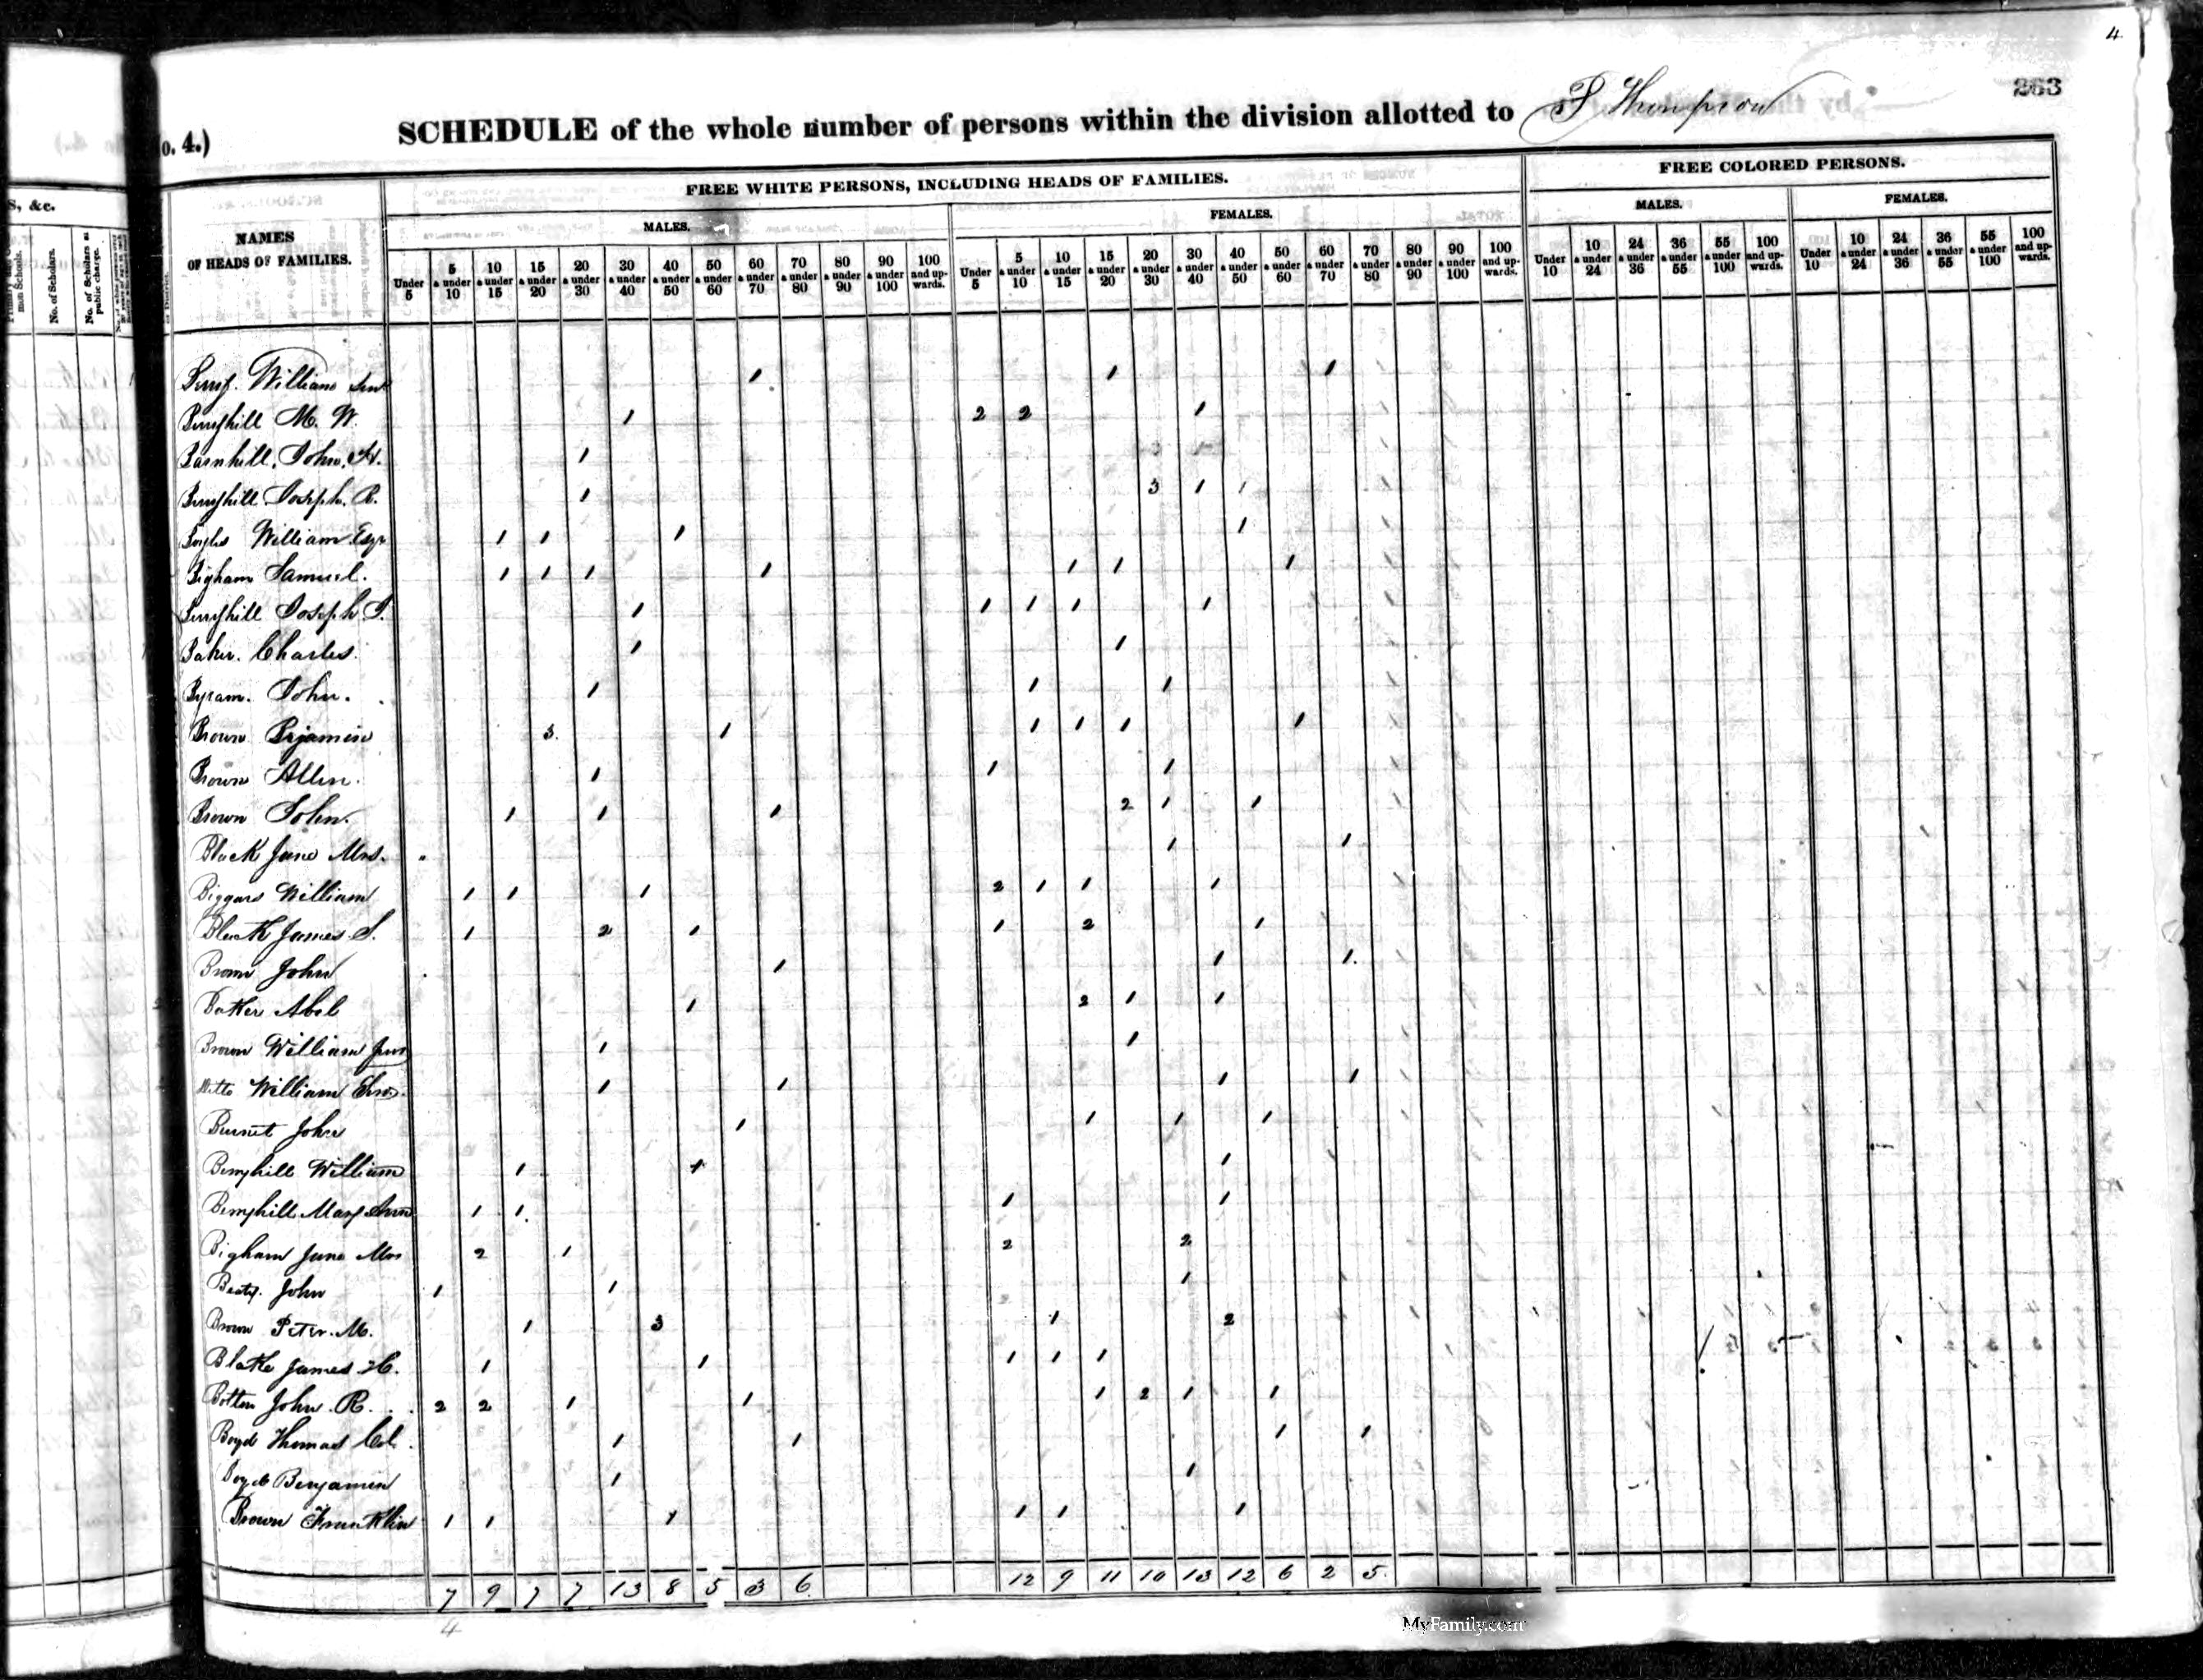 4
263
o. 4.)
SCHEDULE of the whole number of persons within the division allotted to Thompson
S, &c.
No. of Scholars.
No. of Scholars at public charge.
NAMES
OF HEADS OF FAMILIES.
FREE WHITE PERSONS, INCLUDING HEADS OF FAMILIES.
FREE COLORED PERSONS.
MALES. FEMALES. MALES. FEMALES.
Under 5
5 & under 10
10 & under 15
15 & under 20
20 & under 30
30 & under 40
40 & under 50
50 & under 60
60 & under 70
70 & under 80
80 & under 90
90 & under 100
100 and upwards.
Under 5
5 & under 10
10 & under 15
15 & under 20
20 & under 30
30 & under 40
40 & under 50
50 & under 60
60 & under 70
70 & under 80
80 & under 90
90 & under 100
100 and upwards.
Under 10
10 & under 24
24 & under 36
36 & under 55
55 & under 100
100 and upwards.
Under 10
10 & under 24
24 & under 36
36 & under 55
55 & under 100
100 and upwards.
William 1 1 1
Berryhill M. W. 1 2 2 1
Barnhill John H. 1
Berryhill Joseph R. 1 3 1 1
William Esqr 1 1 1 1
Bigham Samuel. 1 1 1 1 1 1 1
Berryhill Joseph 1 1 1 1 1
Baker Charles 1 1
Byram John. 1 1 1
Brown Bejamin 3 1 1 1 1 1
Brown Allen. 1 1 1
Brown John. 1 1 1 2 1 1
Black Jane Mrs. 1 1
Biggars William 1 1 1 2 1 1 1
Black James S. 1 2 1 1 2 1
Brown John 1 1 1
Baker Abel 1 2 1 1
Brown William Jun 1 1
ditto William 1 1 1 1
Burnet John 1 1 1 1
Berryhill William 1 1 1
Berryhill Mary Ann 1 1 1 1
Bigham Jane Mrs 2 1 2 2
Beaty John 1 1 1
Brown Peter M. 1 3 1 2
Blake James H. 1 1 1 1 1
John R. 2 2 1 1 1 2 1 1
Boyd Thomas Col. 1 1 1 1
Boyd Benjamin 1 1
Brown Franklin 1 1 1 1 1 1
7 9 7 7 13 8 5 3 6 12 9 11 10 13 12 6 2 5
4
MyFamily.com